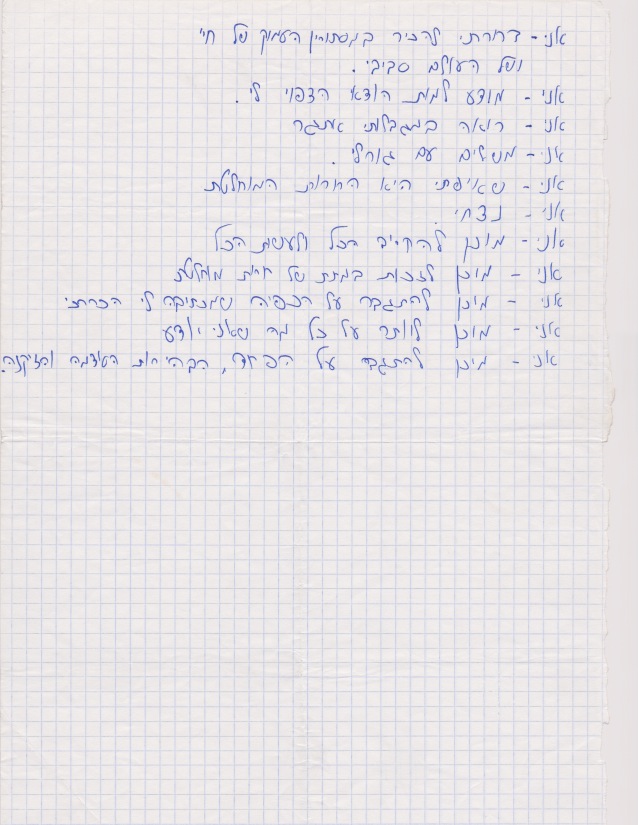 אני - דרוכתי להכיר במסתורין העמוק של חיי
ושל העולם סביבי.
אני - מודע למות הודאי הצפוי לי.
אני - רואה במגבלותי אתגר
אני - משלים עם גורלי.
אני - שאיפתי היא החרות המוחלטת
אני - נצחי.
אני - מוכן להקריב הכל ולעשות הכל
אני - מוכן לזכות במתת של חרות מוחלטת
אני - מוכן להתגבר על הכפיה שמכתיבה לי הכרתי
אני - מוכן לותר על כל מה שאני יודע
אני - מוכן להתגבר על הפחד, הבהירות העוצמה והזיקנה.